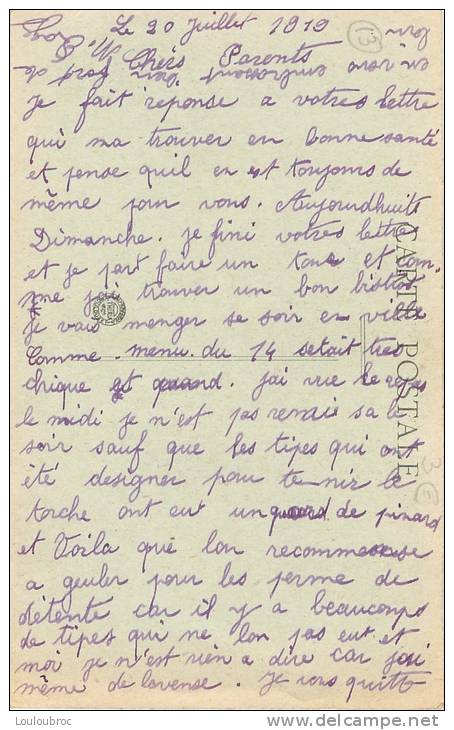 Le 20 Juillet 1919
Chers Parents
Je fait reponse a votres lettre
qui ma trouver en bonne santé
et pense quil en est toujours de
même pour vous. Aujourdhuit
Dimanche. je fini votres lettres
et je part faire un tour et com-
me j'ai trouver un bon bistro
Je vais menger se soir en ville
Comme menu du 14 setait tres
chique et quand j'ai vue le repas
le midi je n'est pas revenu
soir sauf que les tipes qui ont
été designer pour tenir le
torche ont eut un quard de pinard
et Voila que lon recommense
a geuler pour les perme de
détente car il y a beaucoups
de tipes qui ne lon pas eut et
moi je n'est rien a dire car jai
même de lavense. Je vous quitte
CARTE POSTALE
13
3 €
Louloubroc
www.delcampe.net